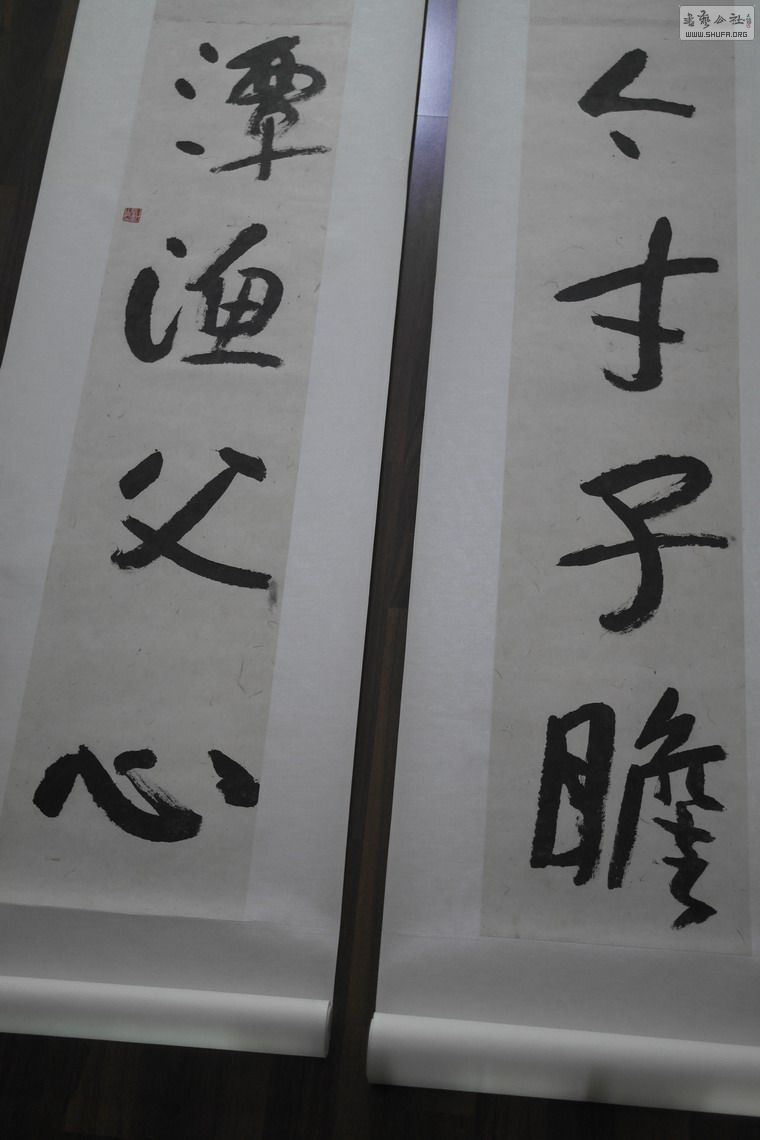 今才子瞻
潭渔父心
書藝公社
WWW.SHUFA.ORG